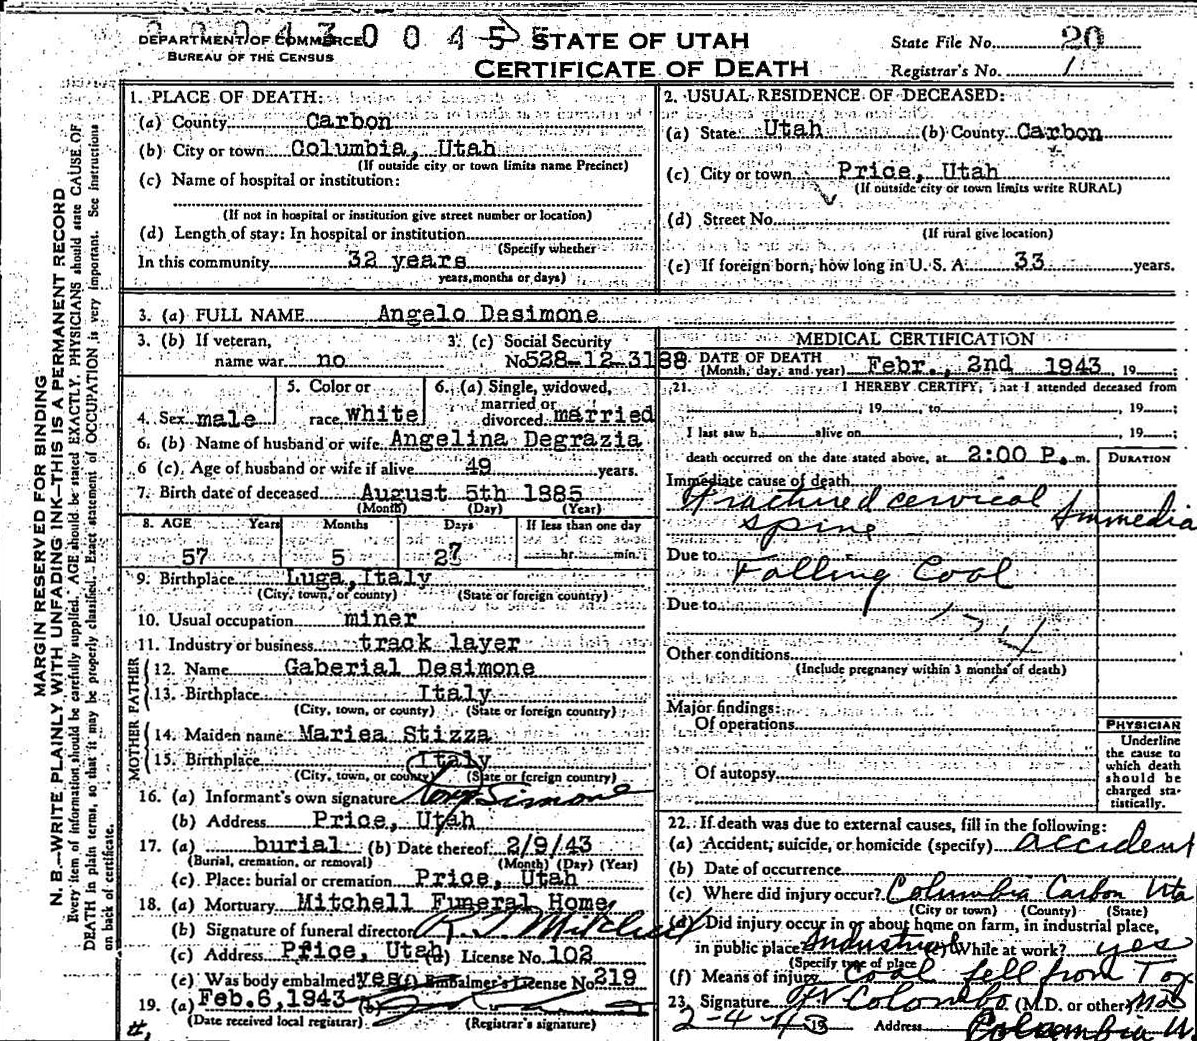 DEPARTMENT OF COMMERCE
BUREAU OF THE CENSUS
STATE OF UTAH
CERTIFICATE OF DEATH
State File No. 20
Registrar's No. 1
MARGIN RESERVED FOR BINDING
N. B.—WRITE PLAINLY WITH UNFADING INK—THIS IS A PERMANENT RECORD
Every item of information should be carefully supplied. AGE should be stated EXACTLY. PHYSICIANS should state CAUSE OF
DEATH in plain terms, so that it may be properly classified. Exact statement of OCCUPATION is very important. See instructions
on back of certificate.
1. PLACE OF DEATH:
(a) County Carbon
(b) City or town Columbia, Utah
(If outside city or town limits name Precinct)
(c) Name of hospital or institution:
(If not in hospital or institution give street number or location)
(d) Length of stay: In hospital or institution
(Specify whether
In this community 32 years
years, months or days)
2. USUAL RESIDENCE OF DECEASED:
(a) State Utah (b) County Carbon
(c) City or town Price, Utah
(If outside city or town limits write RURAL)
(d) Street No.
(If rural give location)
(e) If foreign born, how long in U. S. A. 33 years.
3. (a) FULL NAME Angelo Desimone
3. (b) If veteran,
name war no
3. (c) Social Security
No 528-12-3188
4. Sex male
5. Color or
race white
6. (a) Single, widowed,
married or
divorced married
6. (b) Name of husband or wife Angelina Degrazia
6 (c). Age of husband or wife if alive 49 years.
7. Birth date of deceased August 5th 1885
(Month) (Day) (Year)
8. AGE Years Months Days If less than one day
57 5 27 hr. min.
9. Birthplace Luga, Italy
(City, town, or county) (State or foreign country)
10. Usual occupation miner
11. Industry or business track layer
FATHER
12. Name Gaberial Desimone
13. Birthplace Italy
(City, town, or county) (State or foreign country)
MOTHER
14. Maiden name Mariea Stizza
15. Birthplace Italy
(City, town, or county) (State or foreign country)
16. (a) Informant's own signature Tony Simone
(b) Address Price, Utah
17. (a) burial (b) Date thereof 2/9/43
(Burial, cremation, or removal) (Month) (Day) (Year)
(c) Place: burial or cremation Price, Utah
18. (a) Mortuary Mitchell Funeral Home
(b) Signature of funeral director R. J. Mitchell
(c) Address Price, Utah (d) License No. 102
(e) Was body embalmed yes (f) Embalmer's License No. 219
19. (a) Feb. 6, 1943 (b)
(Date received local registrar) (Registrar's signature)
MEDICAL CERTIFICATION
DATE OF DEATH
(Month, day, and year) Febr., 2nd 1943, 19
21. I HEREBY CERTIFY, that I attended deceased from
, 19 , to , 19 ;
I last saw h alive on , 19 ;
death occurred on the date stated above, at 2:00 P. m.
DURATION
Immediate cause of death
Fractured cervical Immedia
spine
Due to
Falling Coal
Due to
Other conditions
(Include pregnancy within 3 months of death)
Major findings:
Of operations
Of autopsy
PHYSICIAN
Underline
the cause to
which death
should be
charged sta-
tistically.
22. If death was due to external causes, fill in the following:
(a) Accident, suicide, or homicide (specify) accident
(b) Date of occurrence
(c) Where did injury occur? Columbia Carbon Uta
(City or town) (County) (State)
(d) Did injury occur in or about home on farm, in industrial place,
in public place Industrial (e) While at work? yes
(Specify type of place
(f) Means of injury coal fell from Top
23. Signature Colombo (M.D. or other) MD
2-4-43 19 Address Columbia U.